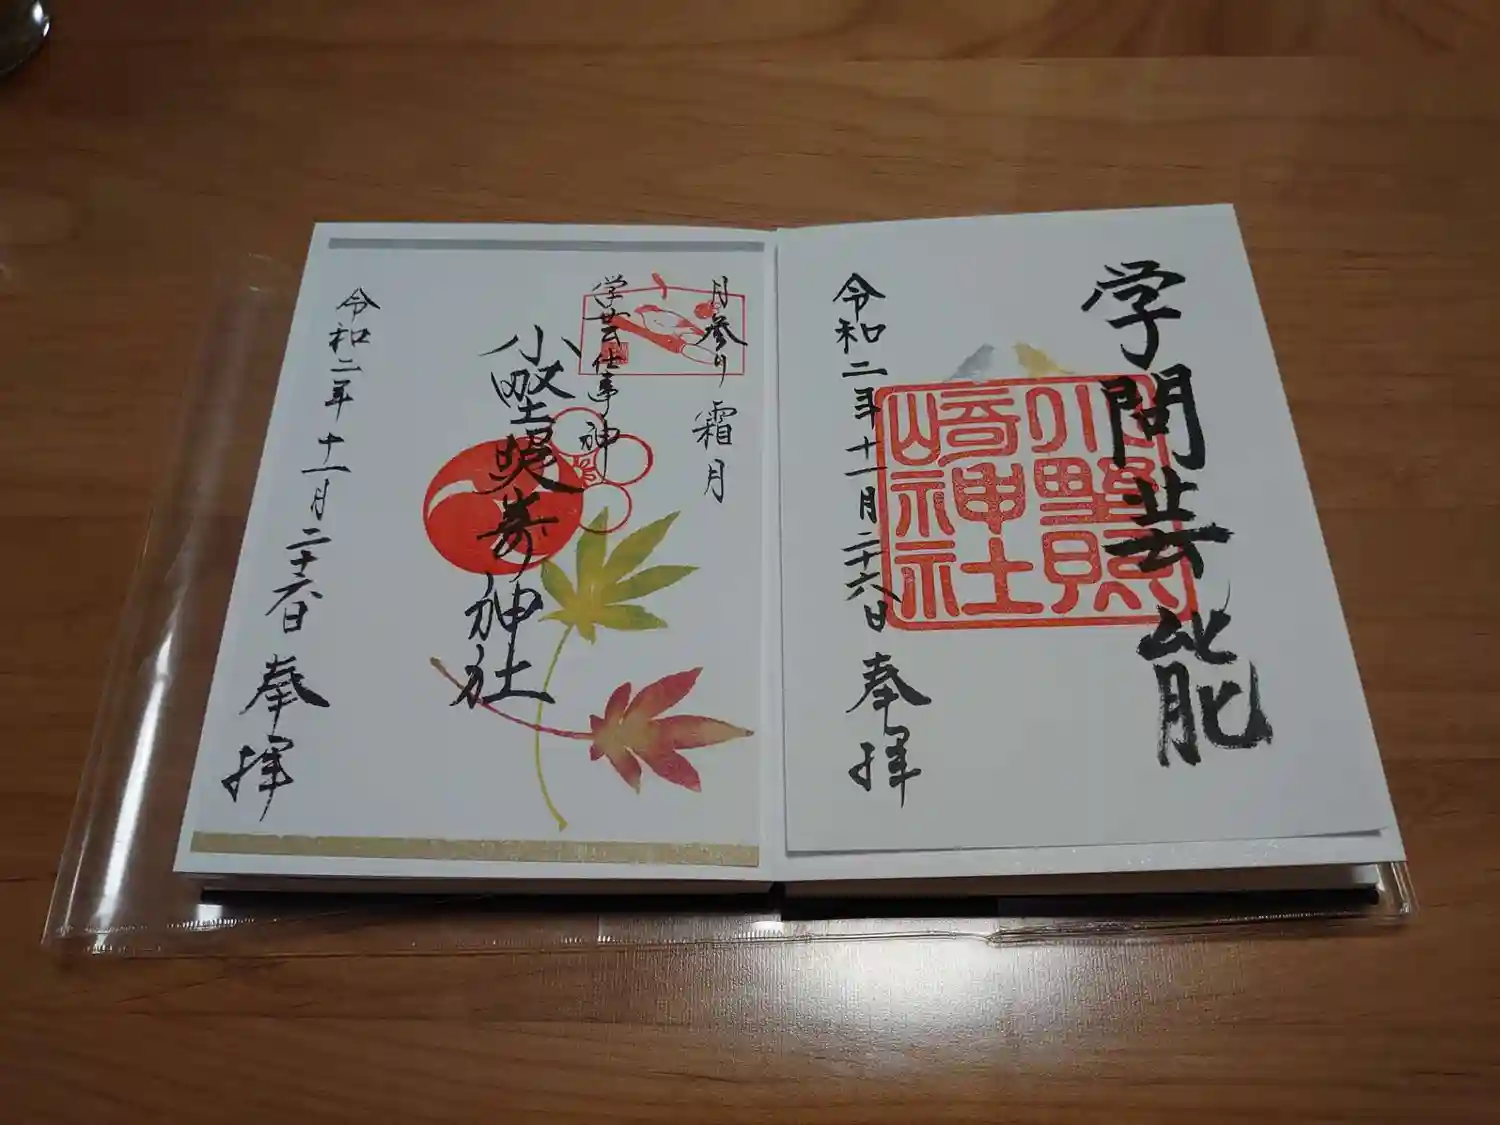 学問芸能
小野照
崎神社
令和二年十一月二十六日
奉拝
月参り 霜月
学芸仕事神
小野照崎神社
令和二年十一月二十六日
奉拝